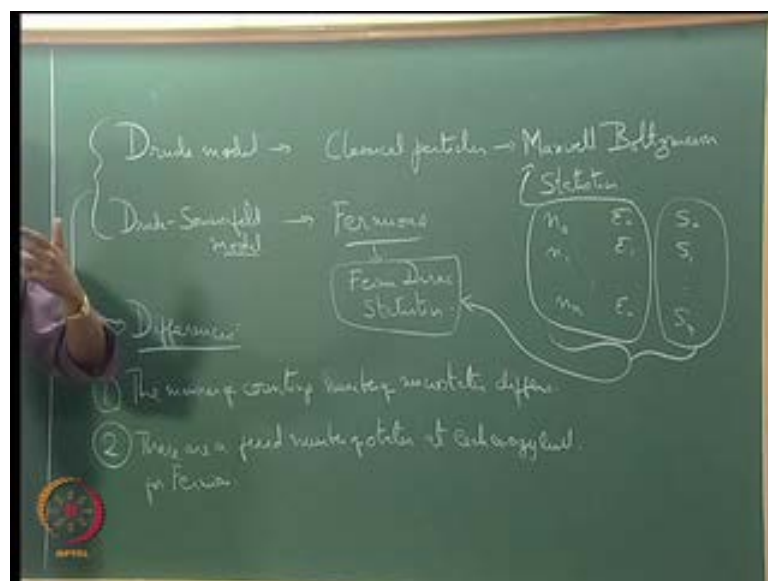 Drude model → Classical particles → Maxwell Boltzmann
Statistics
Drude-Sommerfeld → Fermions
model
Fermi Dirac
Statistics
n₀ ε₀ S₀
n₁ ε₁ S₁
Differences
① The manner of counting number of microstates differs.
② There are a fixed number of states at each energy level
for Fermions
NPTEL